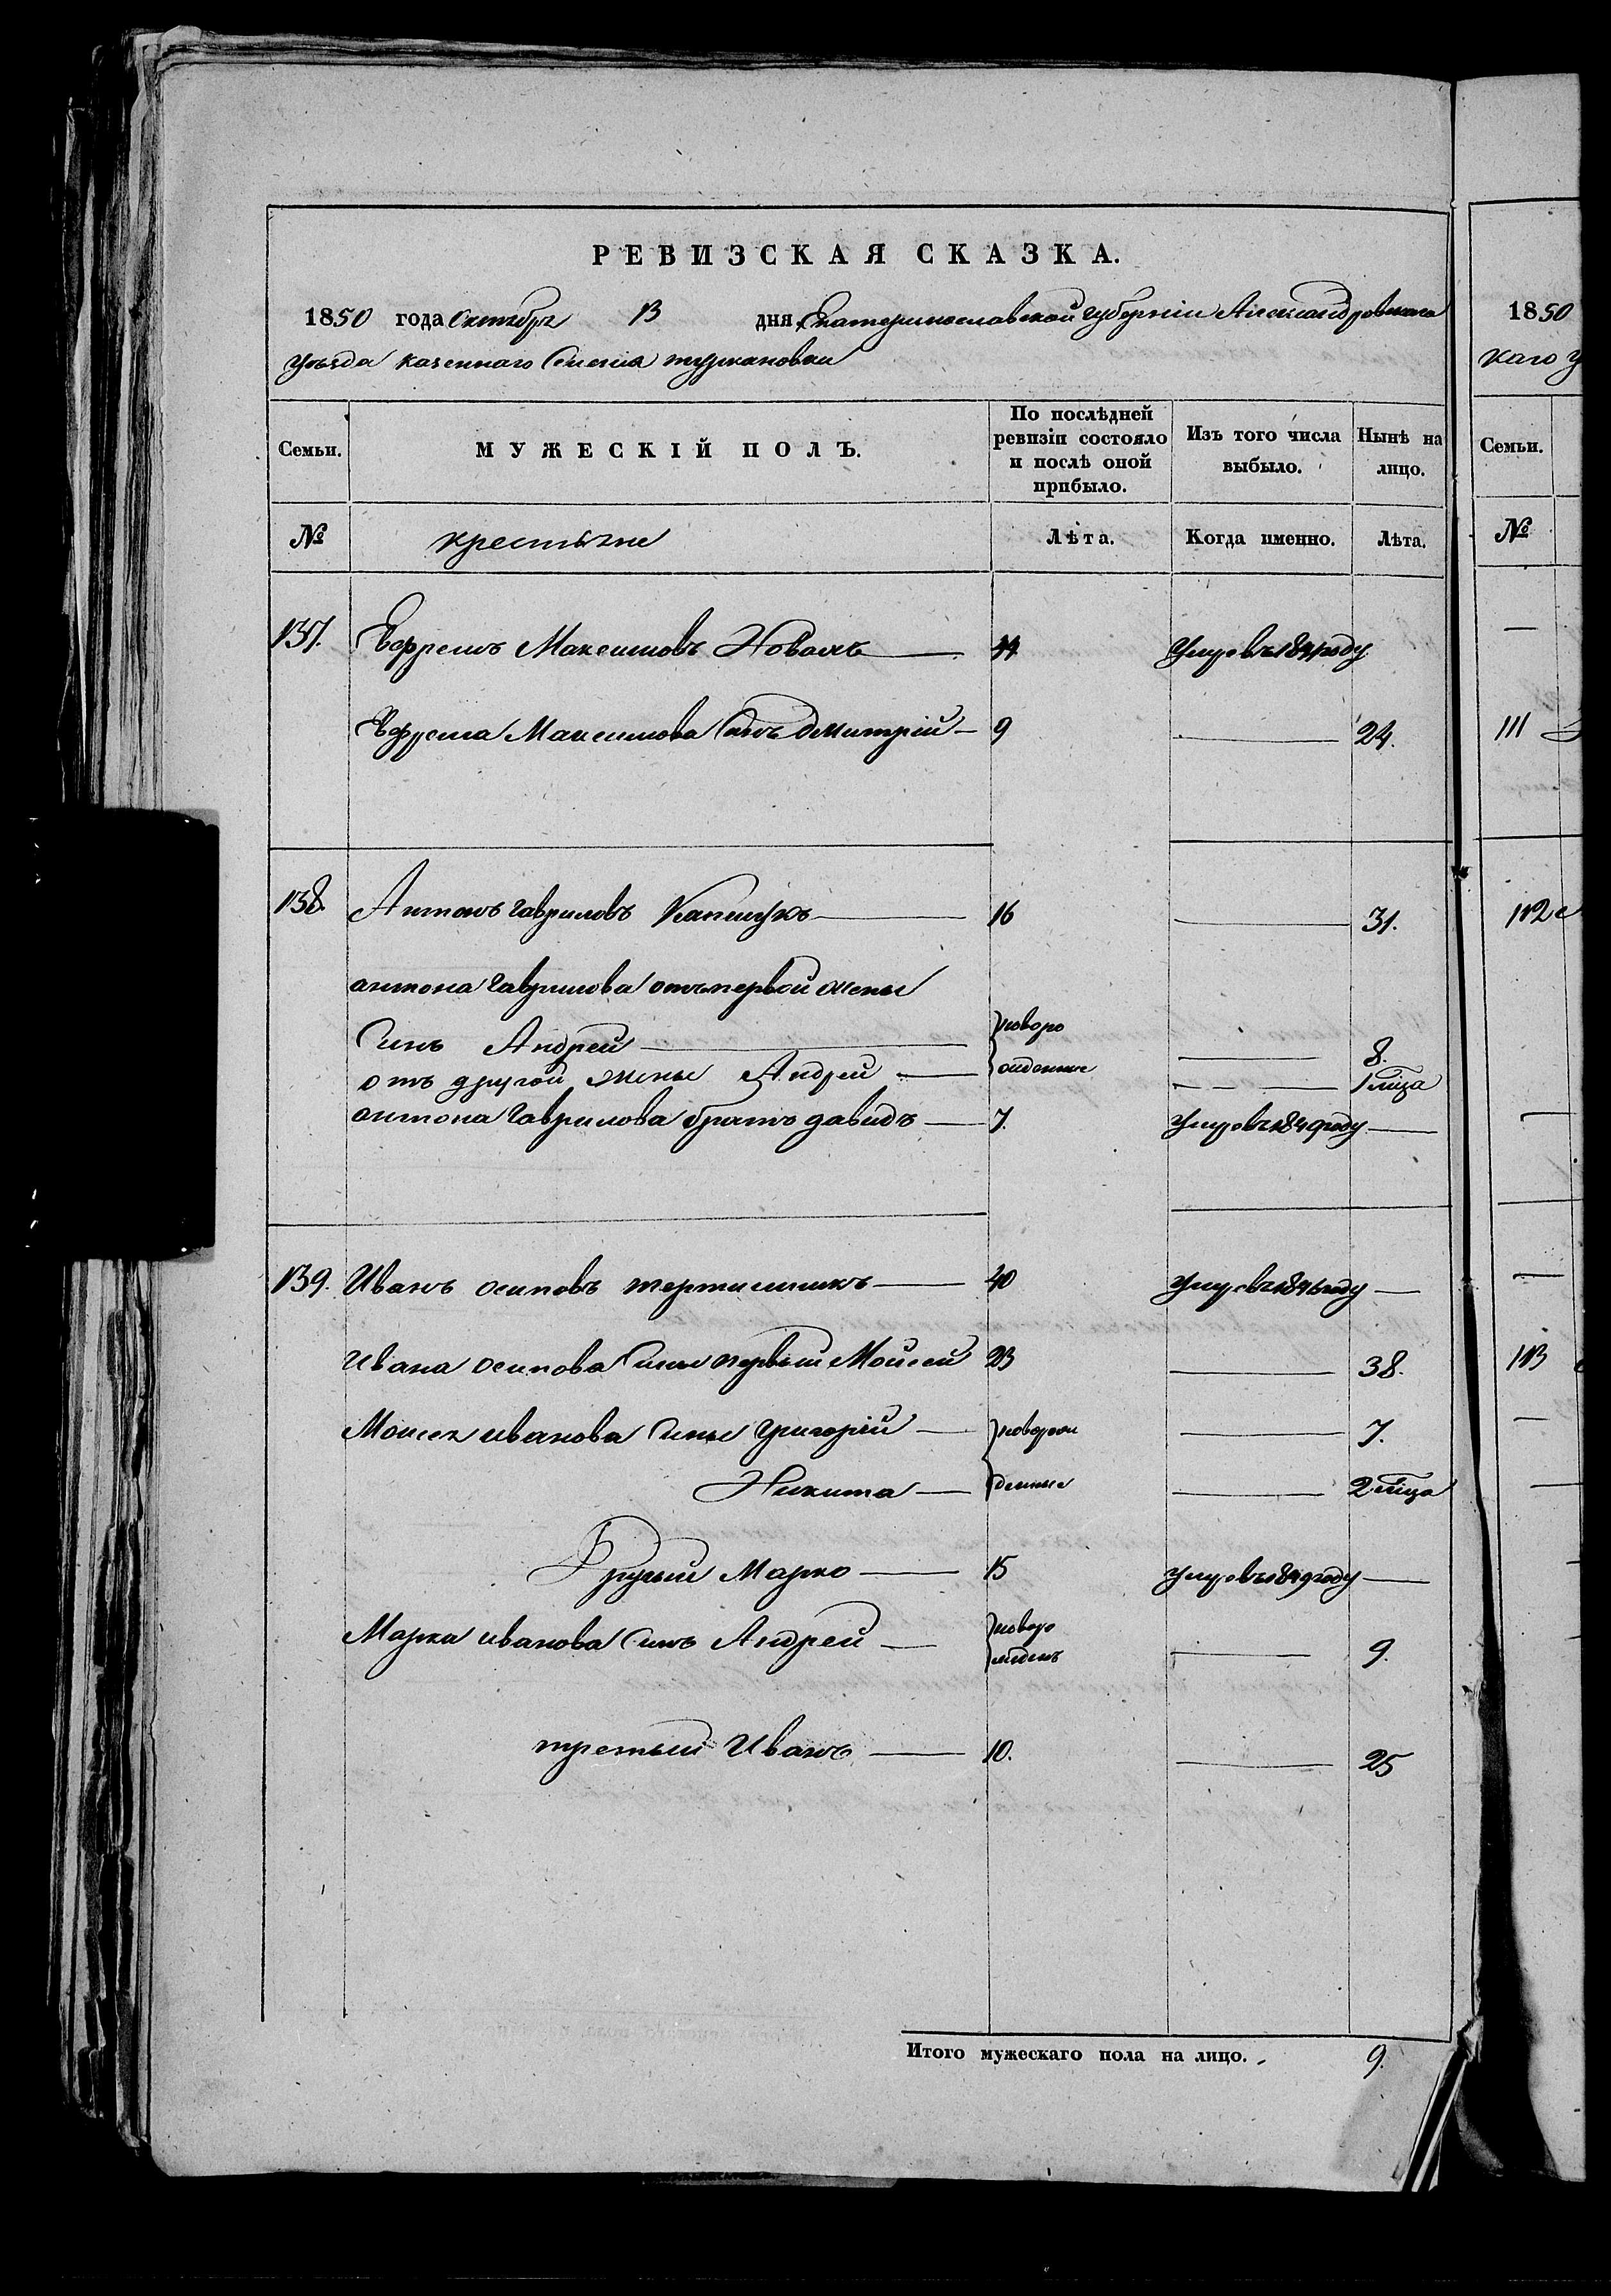 РЕВИЗСКАЯ СКАЗКА.
1850 года Октября 13 дня Екатеринославской губерніи Александровскаго
уѣзда казеннаго Селенія туркановки
Семьи. МУЖЕСКІЙ ПОЛЪ. По послѣдней ревизіи состояло и послѣ оной прибыло. Изъ того числа выбыло. Нынѣ на лицо.
№ крестьяне Лѣта. Когда именно. Лѣта.
137. Ефремъ Максимовъ Новакъ 44 умре въ 1841 году
Ефрема Максимова Сынъ Дмитрій 9 24.
138. Антонъ Гавриловъ 16 31.
антона Гаврилова отъ первой жены
Сынъ Андрей новоро 8.
отъ другой жены Андрей жденные 1 мца
антона Гаврилова братъ давидъ 7. умре въ 1849 году
139. Иванъ осиповъ тертишникъ 40 умре въ 1846 году
Ивана осипова Сыны первый Моисей 23 38.
Моисея иванова Сыны григорій новорож 7.
Никита денные 2 мца
Другий Марко 15 умре въ 1849 году
Марка иванова Сынъ Андрей новоро жденъ 9.
третий Иванъ 10. 25
Итого мужескаго пола на лицо. 9.
1850
каго у
Семьи.
№
111
112
113